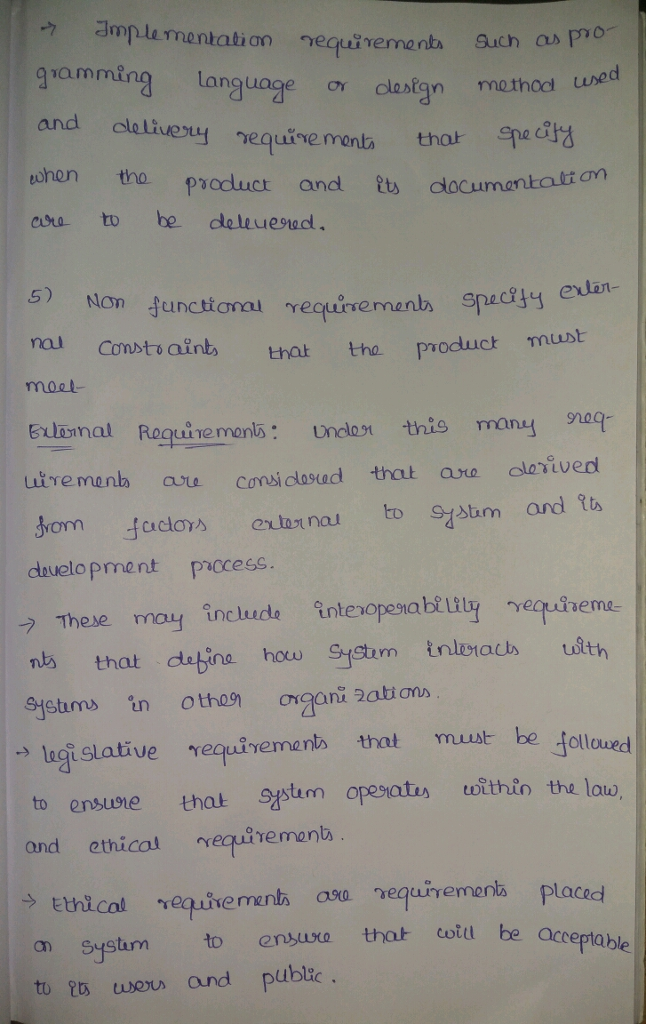 → Implementation requirements such as pro-
gramming language or design method used
and delivery requirements that specify
when the product and its documentation
are to be delevered.
5) Non functional requirements specify exter-
nal constraints that the product must
meet
External Requirements: Under this many req-
uirements are considered that are derived
from factors external to system and its
development process.
→ These may include interoperability requireme-
nts that define how system interacts with
systems in other organizations.
→ legislative requirements that must be followed
to ensure that system operates within the law,
and ethical requirements.
→ Ethical requirements are requirements placed
on system to ensure that will be acceptable
to its users and public.